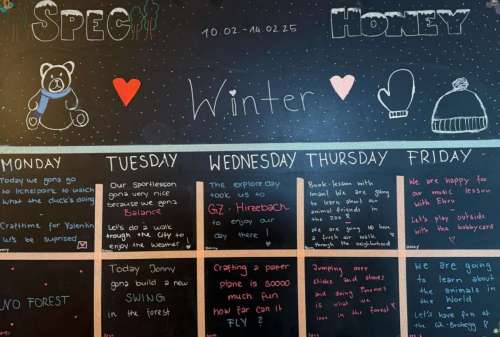 SPEC
10.02-14.02.25
HONEY
Winter
MONDAY
TUESDAY
WEDNESDAY
THURSDAY
FRIDAY
Today we gons go
to
to watch
what the duck's doing
Crafttime for Valentin
Will be suprised
Our Sportlesson
gona very nice
because we gona
Balance
Let's do a walk
trough the City to
enjoy the weather!
The explore day
took us to
GZ - Hirzebach
to enjoy our
day there!
Book-lesson with
Iman! We are going
to learn about our
animal friends in
the zoo
We are going to have
a fresh air walk
through the neighborhood
We are happy for
our music lesson
with Ebru
Let's play outside
with the bobbycars
NO FOREST
Today Jonny
gona build a new
SWING
in the forest
Crafting a paper
plane is soooo
much fun
how far can it
FLY?
Jumping over
sticks and stones
and doing
is what we
love in the forest
We are going
to learn about
the animals in
the World
Let's have fun at
the GZ-